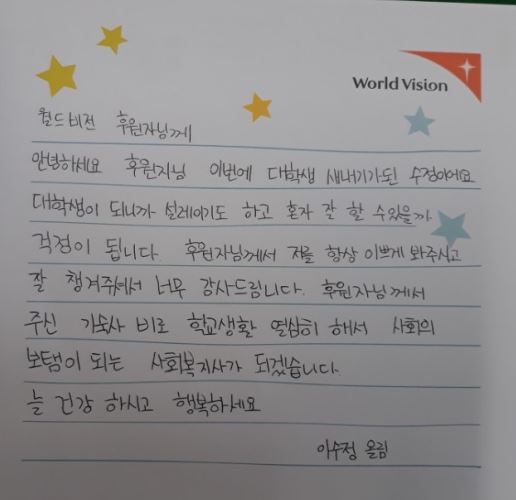 World Vision
월드비전 후원자님께
안녕하세요 후원자님 이번에 대학생 새내기가된 수정이에요
대학생이 되니까 설레이기도 하고 혼자 잘 할 수있을까
걱정이 됩니다. 후원자님께서 저를 항상 이쁘게 봐주시고
잘 챙겨주셔서 너무 감사드립니다. 후원자님께서
주신 기숙사 비로 학교생활 열심히 해서 사회의
보탬이 되는 사회복지사가 되겠습니다.
늘 건강 하시고 행복하세요
이수정 올림